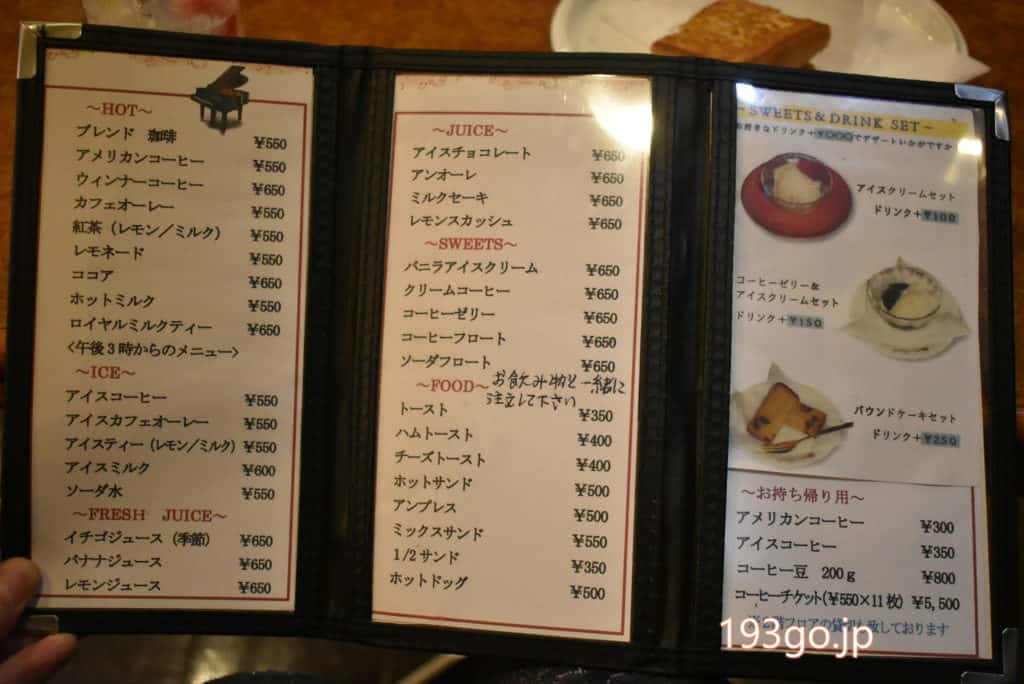 ～HOT～
ブレンド 珈琲 ¥550
アメリカンコーヒー ¥550
ウィンナーコーヒー ¥650
カフェオーレー ¥550
紅茶（レモン／ミルク） ¥550
レモネード ¥550
ココア ¥650
ホットミルク ¥550
ロイヤルミルクティー ¥650
<午後3時からのメニュー>
～ICE～
アイスコーヒー ¥550
アイスカフェオーレー ¥550
アイスティー（レモン／ミルク） ¥550
アイスミルク ¥600
ソーダ水 ¥550
～FRESH JUICE～
イチゴジュース（季節） ¥650
バナナジュース ¥650
レモンジュース ¥650
～JUICE～
アイスチョコレート ¥650
アンオーレ ¥650
ミルクセーキ ¥650
レモンスカッシュ ¥650
～SWEETS～
バニラアイスクリーム ¥650
クリームコーヒー ¥650
コーヒーゼリー ¥650
コーヒーフロート ¥650
ソーダフロート ¥650
～FOOD～ お飲み物と一緒に
注文して下さい
トースト ¥350
ハムトースト ¥400
チーズトースト ¥400
ホットサンド ¥500
アンプレス ¥500
ミックスサンド ¥550
1/2サンド ¥350
ホットドッグ ¥500
~SWEETS & DRINK SET~
お好きなドリンク+¥○○○でデザートいかがですか
アイスクリームセット
ドリンク+¥100
コーヒーゼリー&
アイスクリームセット
ドリンク+¥150
パウンドケーキセット
ドリンク+¥250
～お持ち帰り用～
アメリカンコーヒー ¥300
アイスコーヒー ¥350
コーヒー豆 200g ¥800
コーヒーチケット(¥550×11枚) ¥5,500
フロアの貸切も致しております
193go.jp